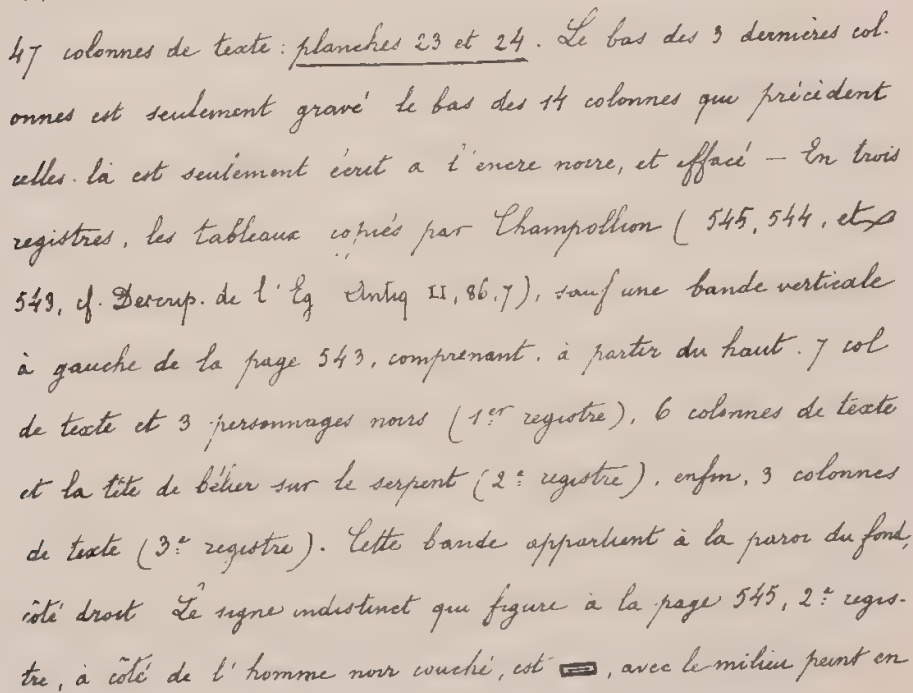 47 colonnes de texte : planches 23 et 24. Le bas des 3 dernières col-
onnes est seulement gravé le bas des 14 colonnes qui précèdent
celles-là est seulement écrit a l'encre noire, et effacé — En trois
registres, les tableaux copiés par Champollion (545, 544, et
543, cf. Descrip. de l'Eg Antiq II, 86, 7), sauf une bande verticale
à gauche de la page 543, comprenant, à partir du haut, 7 col
de texte et 3 personnages noirs (1er registre), 6 colonnes de texte
et la tête de bélier sur le serpent (2e registre), enfin, 3 colonnes
de texte (3e registre). Cette bande appartient à la paroi du fond,
côté droit Le signe indistinct qui figure à la page 545, 2e regis-
tre, à côté de l'homme noir couché, est , avec le milieu peint en